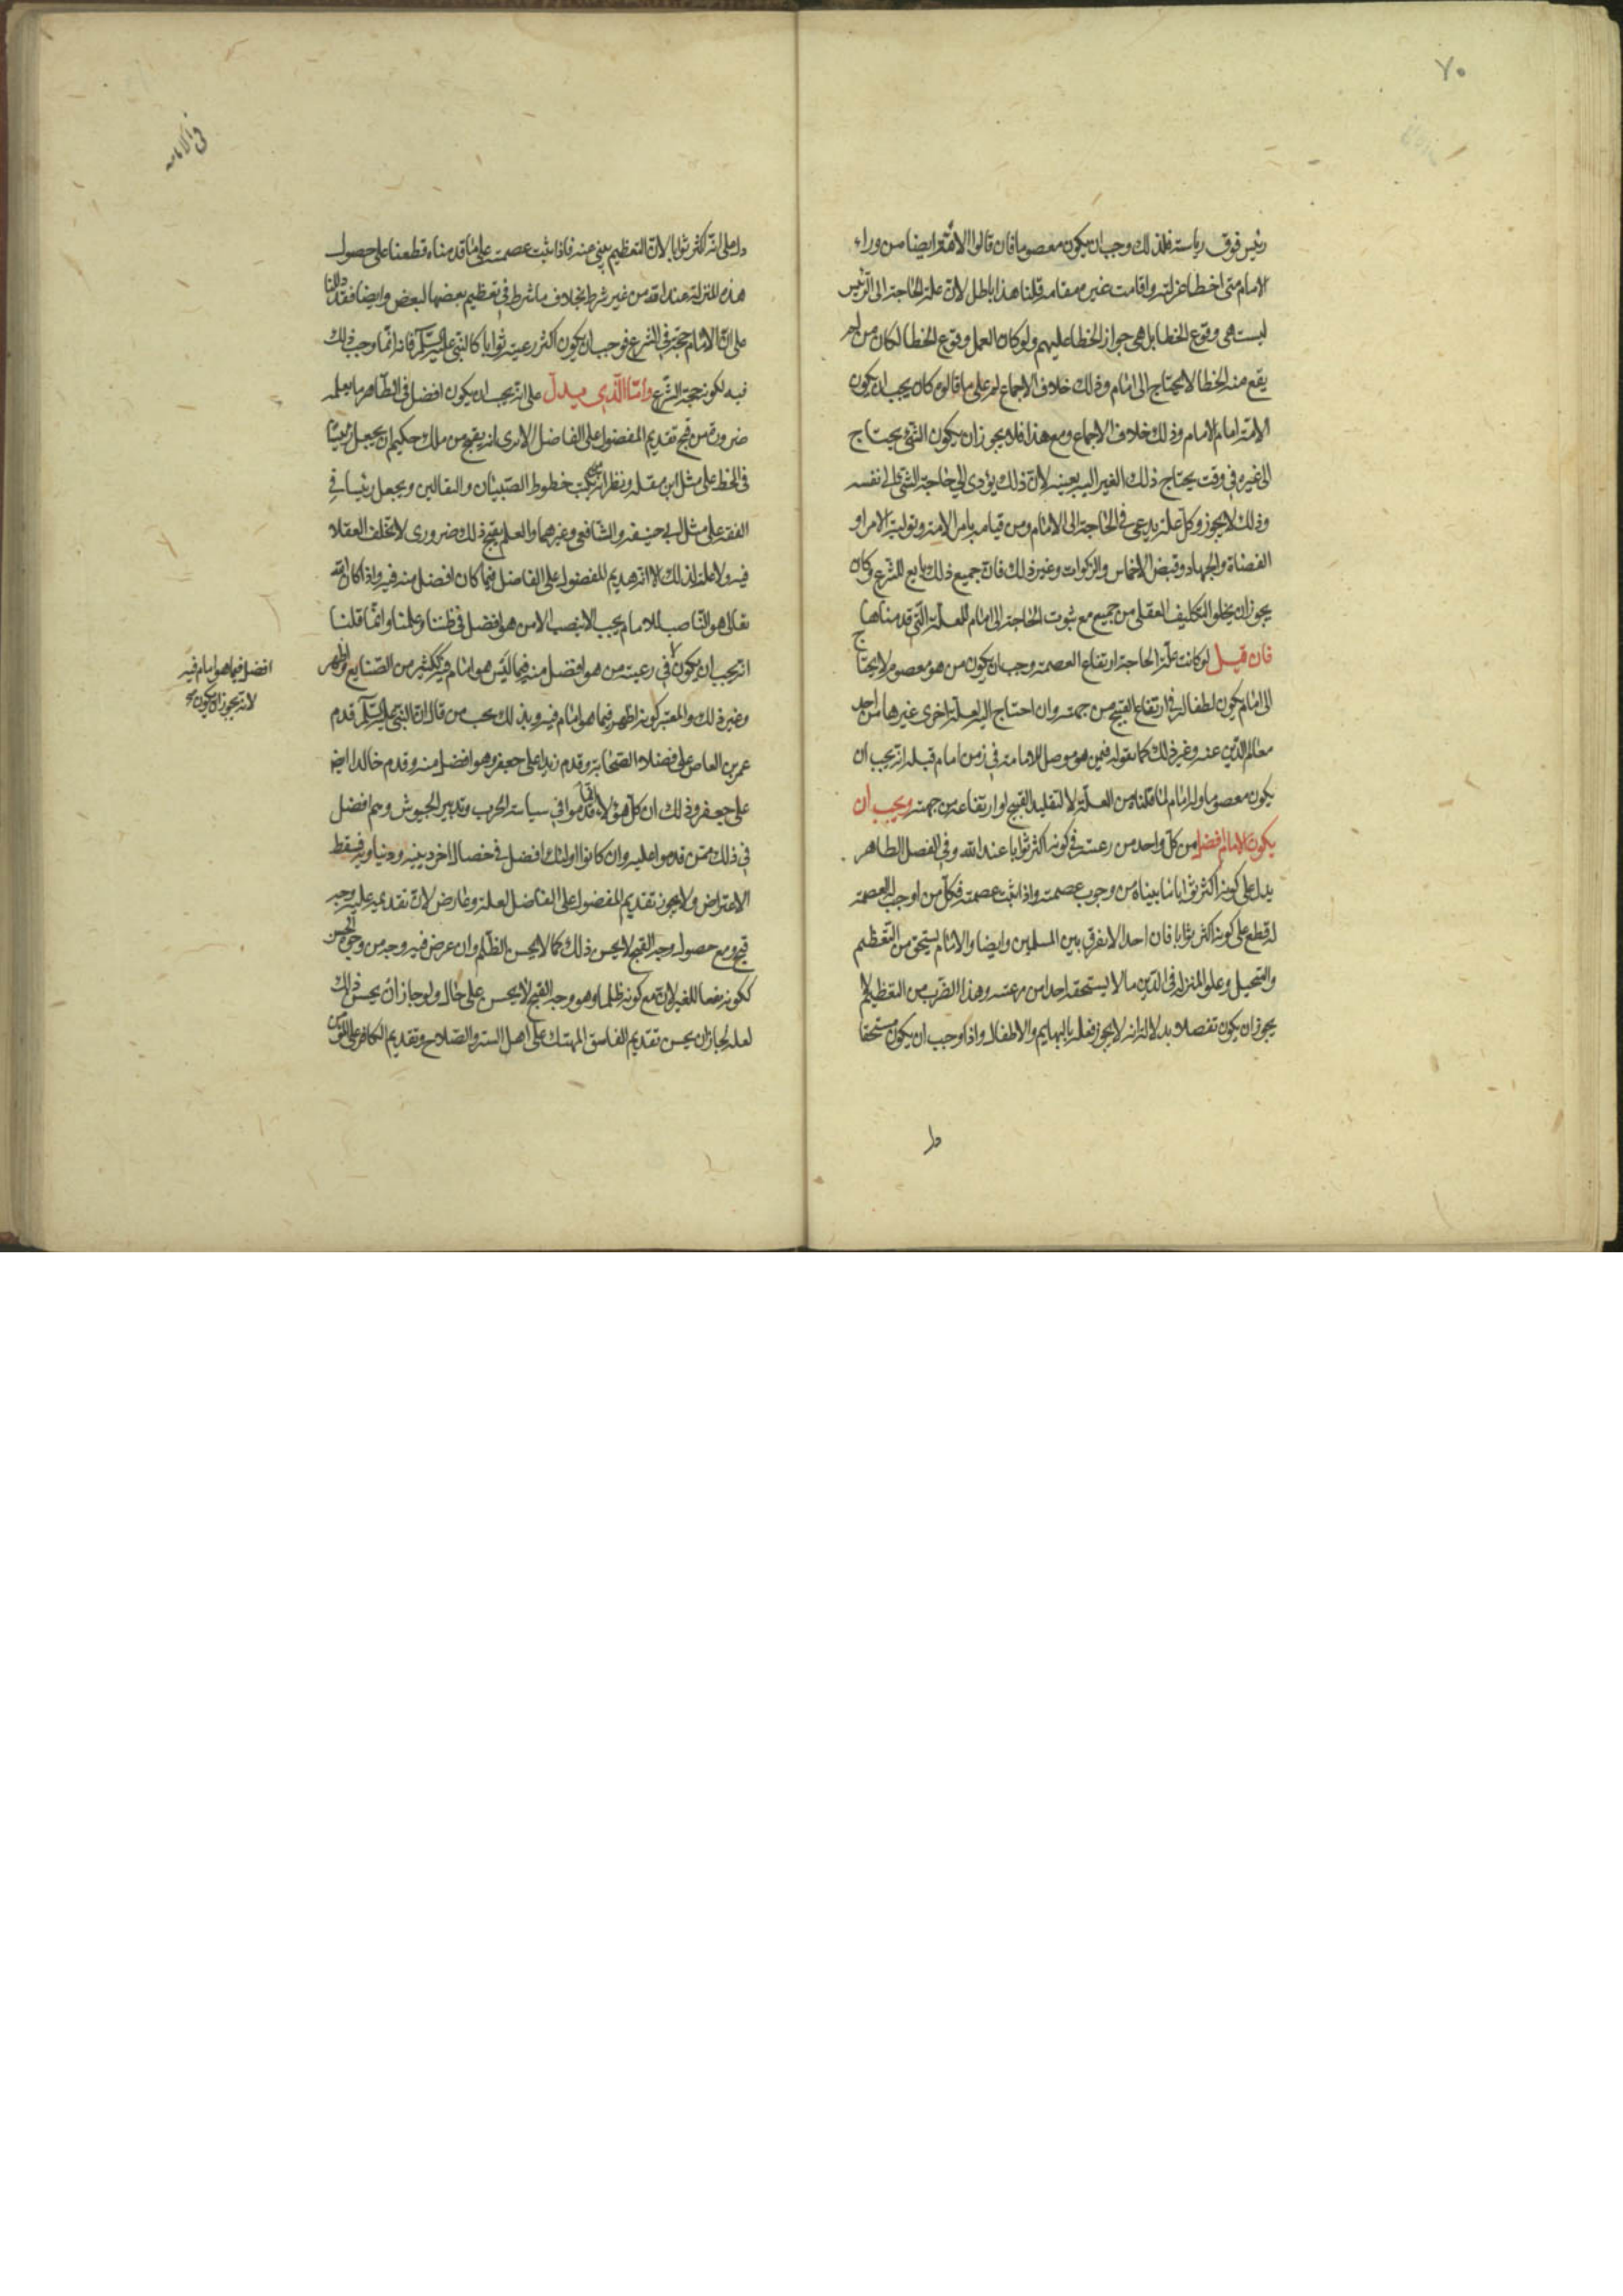 ٧٠
رئيس فوق رياسته فلذلك وجب ان يكون معصوما فان قالوا الامة ايضا من وراء
الامام متى اخطا عزلته واقامت غيره مقامه قلنا هذا باطل لان علة الحاجة الى الرئيس
ليست هى وقوع الخطا بل هى جواز الخطا عليهم ولو كان العمل وقوع الخطا لكان من لم
يقع منه الخطا لا يحتاج الى امام وذلك خلاف الاجماع ثم على ما قالوه كان يجب ان يكون
الامة امام الامام وذلك خلاف الاجماع ومع هذا فلا يجوز ان يكون الشئ يحتاج
الى غيره فى وقت يحتاج ذلك الغير اليه بعينه لان ذلك يؤدى الى حاجة الشئ الى نفسه
وذلك لا يجوز وكل علة يدعى فى الحاجة الى الامام ومن قيامه بامر الامة وتولية الامراء
القضاة والجهاد وقبض الاخماس والزكوات وغير ذلك فان جميع ذلك تابع للشرع وكان
يجوز ان يخلو التكليف العقلى من جميع مع ثبوت الحاجة الى امام للعلة التى قدمناها
فان قيل لو كانت علة الحاجة ارتفاع العصمة وجب ان يكون من هو معصوم لا يحتاج
الى امام يكون لطفا له فى ارتفاع القبيح من جهته وان احتاج اليه لعلة اخرى غيرها من اخذ
معالم الدين عنه وغير ذلك كما نقوله فيمن هو موصل للامامة فى زمن امام قبله انه يجب ان
يكون معصوما وله امام لما قلناه من العلة لا لتقليل القبيح او ارتفاعه من جهته ويجب ان
يكون الامام افضل من كل واحد من رعيته فى كونه اكثر ثوابا عند الله وفى الفصل الظاهر
يدل على كونه اكثر ثوابا ما بيناه من وجوب عصمته واذا ثبت عصمته فكل من اوجب له العصمة
له قطع على كونه اكثر ثوابا فان احدا لا يفرق بين المسلمين وايضا والامام يستحق من التعظيم
والتبجيل وعلو المنزلة فى الدين ما لا يستحقه احد من رعيته وهذا الضرب من التعظيم لا
يجوز ان يكون تفضلا بدلالة انه لا يجوز فعله بالبهايم والاطفال واذا وجب ان يكون مستحقا
ط
فى الامامه
دل على انه اكثر ثوابا لان التعظيم ينبى عنه فاذا ثبت عصمته على ما قدمناه قطعنا على حصول
هذه المنزلة عند الله من غير شرط بخلاف ما شرط فى تعظيم بعضها لبعض وايضا فقد دللنا
على ان الامام حجة فى الشرع فوجب ان يكون اكثر رعيته ثوابا كالنبى عليه السلم فانه انما وجب ذلك
فيه لكونه حجة الشرع واما الذى يدل على انه يجب ان يكون افضل فى الظاهر ما يعلم
ضرورة من قبح تقديم المفضول على الفاضل الا ترى انه يقبح من ملك حكيم ان يجعل رئيسا
فى الخط على مثل ابن مقلة ونظرائه من يكتب خطوط الصبيان والبقالين ويجعل رئيسا فى
الفقه على مثل ابى حنيفه والشافعى وغيرهما والعلم بقبح ذلك ضرورى لا يختلف العقلاء
فيه ولا علة لذلك الا انه تقديم للمفضول على الفاضل فيما كان افضل منه فيه واذا كان الله
تعالى هو الناصب للامام يجب الا ينصب الا من هو افضل فى ظننا وعلمنا وانما قلنا
انه يجب ان يكون لا فى رعيته من هو افضل منه فيما ليس هو امام فيه ككثير من الصنايع والمهن
وغير ذلك والمعتبر كونه اظهر فيما هو امام فيه وبذلك يجب من قال ان النبى عليه السلم قدم
عمرو بن العاص على فضلاء الصحابة وقدم زيدا على جعفر وهو افضل منه وقدم خالدا ايضا
على جعفر وذلك ان كل هؤلاء انما قدموا فى سياسة الحرب وتدبير الجيوش وهم افضل
فى ذلك ممن قدموا عليه وان كانوا اولئك افضل فى خصال اخر دينيه ودنياويه فسقط
الاعتراض ولا يجوز تقديم المفضول على الفاضل لعلة وعارض لان تقديمه عليه وجه
قبح ومع حصول وجه القبح لا يحسن ذلك كما لا يحسن الظلم وان عرض فيه وجه من وجوه الحسن
ككونه نفعا للغير لان مع كونه ظلما وهو وجه القبح لا يحسن على حال ولو جاز ان يحسن ذلك
لعلة لجاز ان يحسن تقديم الفاسق المتهتك على اهل الستر والصلاح وتقديم الكافر على المؤمن
افضل فيما هو امام فيه
لانه يجوز ان يكون